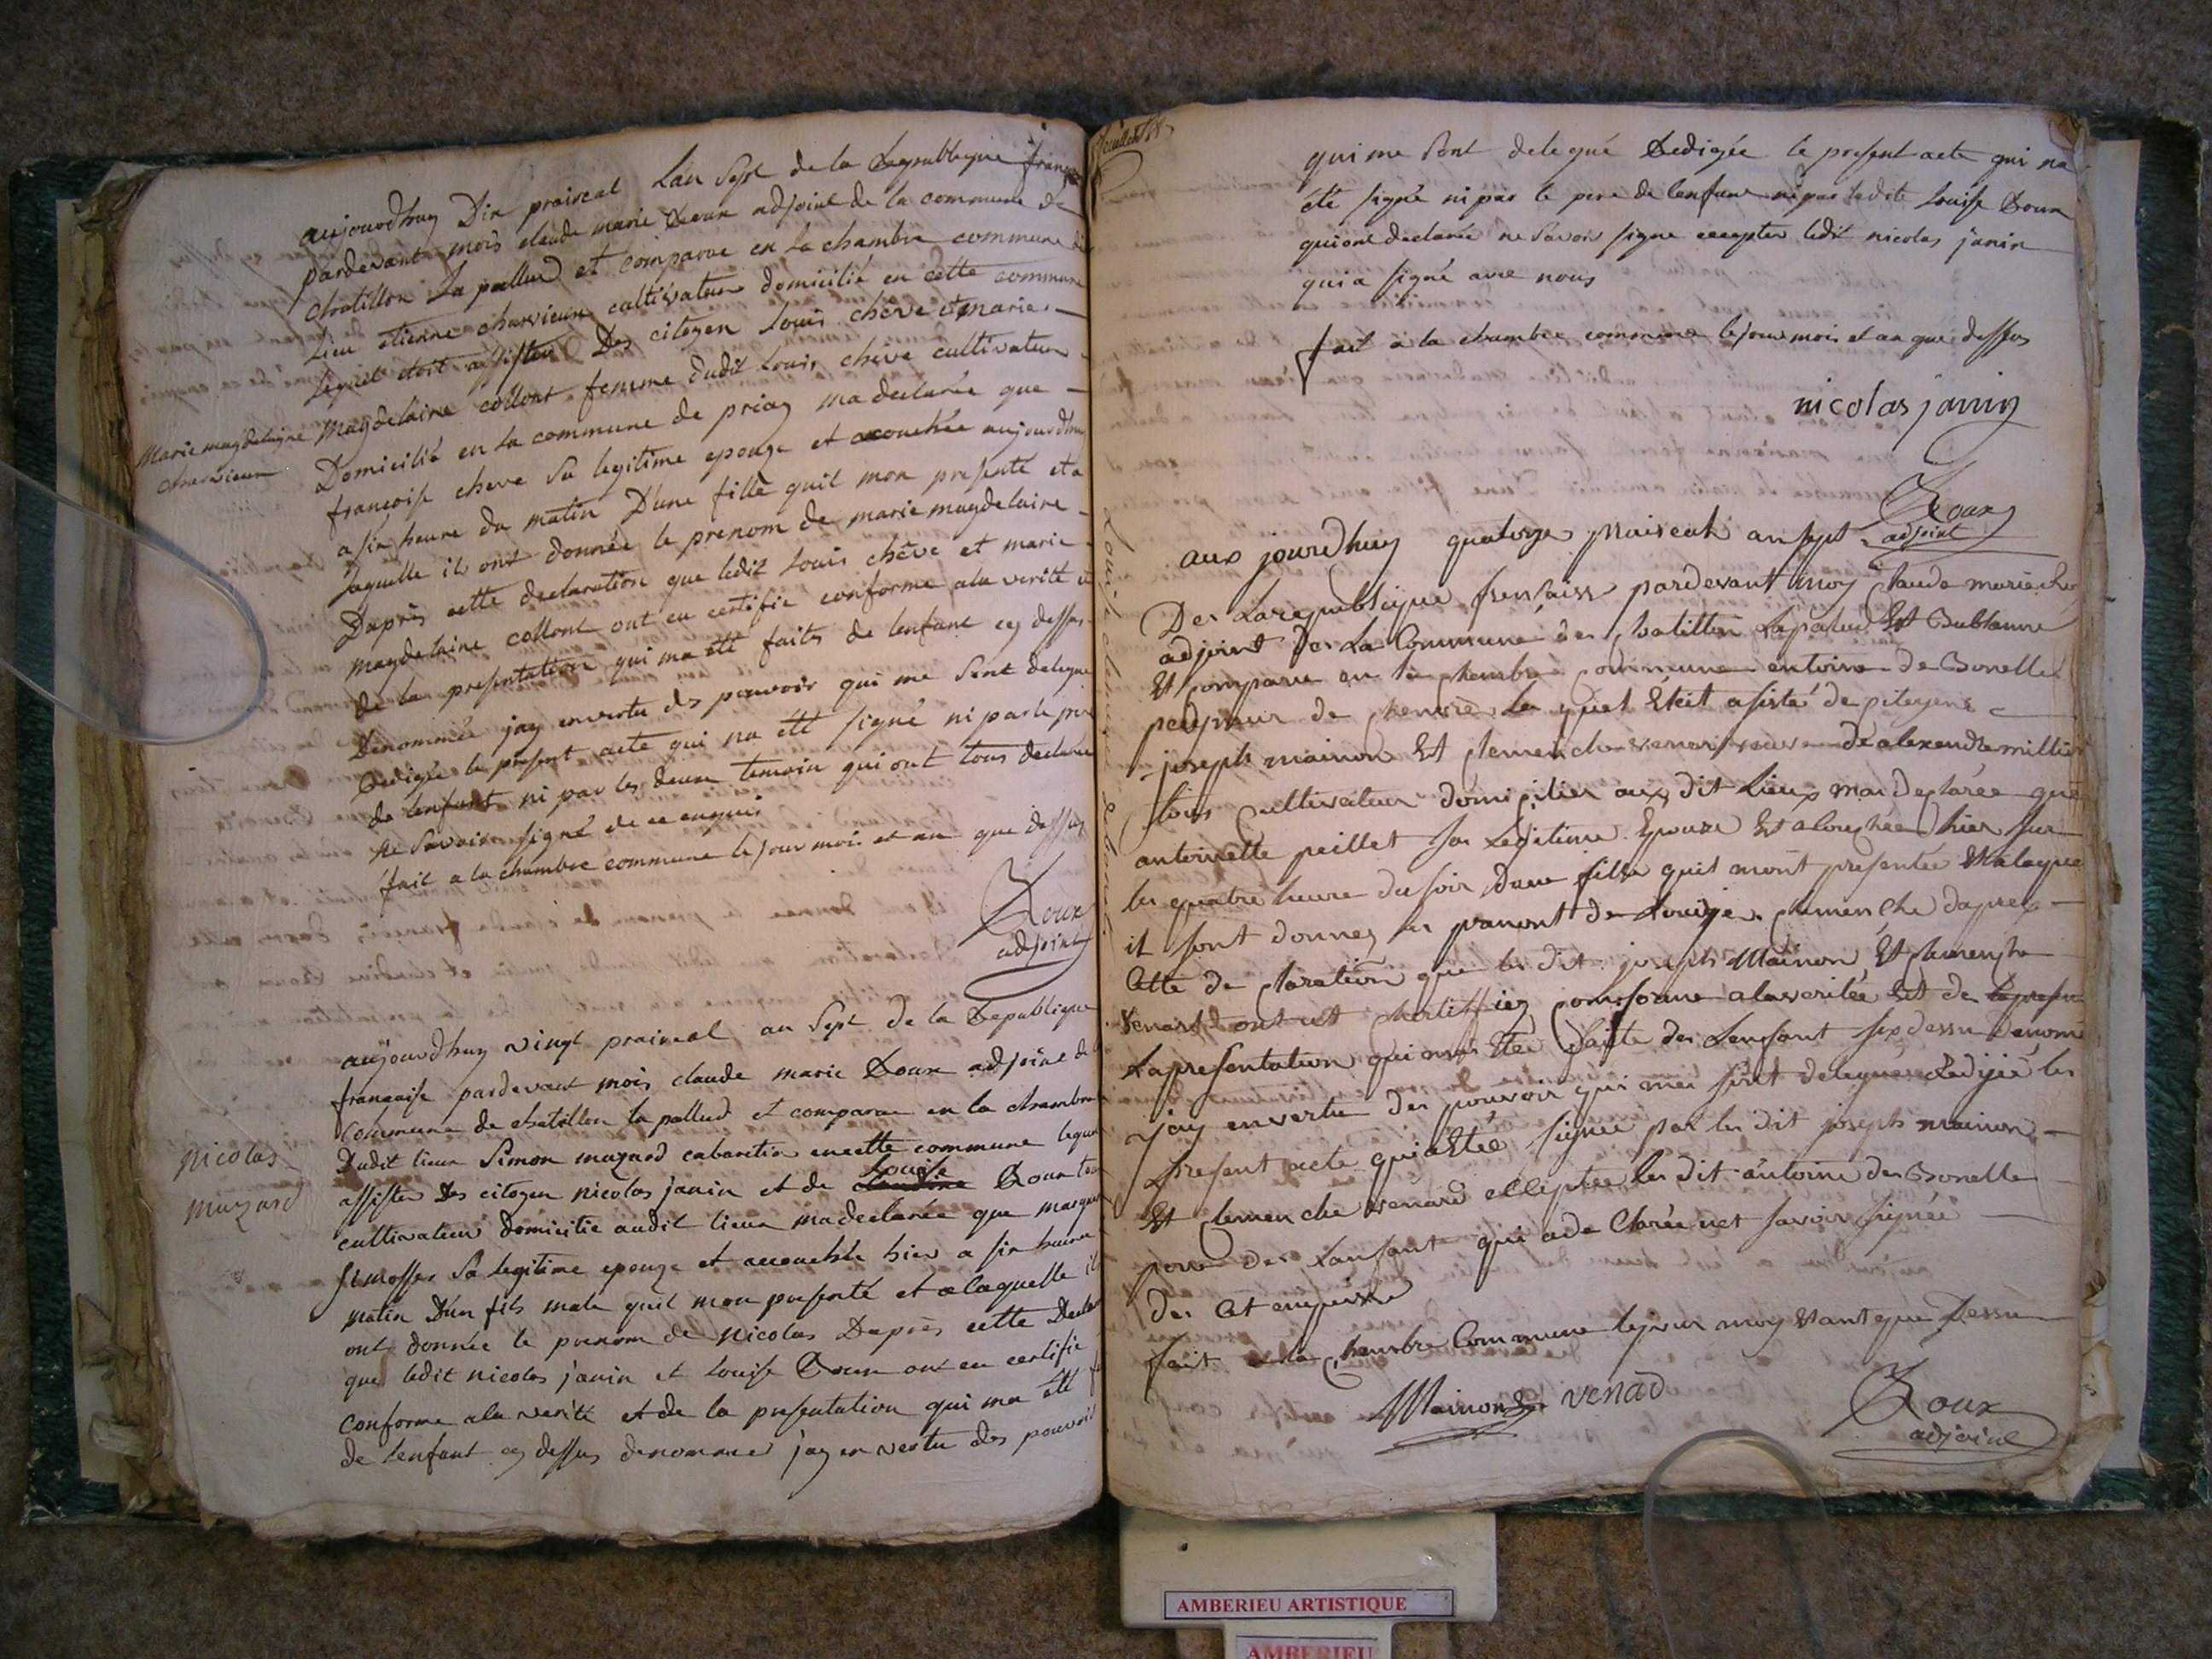 aujourdhuy Dix praireal Lan Sept de la Republique française
pardevant mois claude marie Roux adjoint de la commune de
chatillon La pallud et comparue en la chambre commune du
Lieu etienne charvieux cultivateur domicilié en cette commune
lequel etoit assister Des citoyen Louis chève et marie
Marie magdelaigne charvieux
Magdelaine collont femme dudit Louis chève cultivateur
Domicilié en la commune de priay ma declarée que
francoise cheve Sa legitime epouge et acouchée aujourdhuy
a six heure du matin D'une fille quil mon presenté et a
laquelle ils ont donnée le prenom de marie magdelaine
Daprès cette declaration que ledit Louis chève et marie
magdelaine collont ont eu certifie conforme ala verité et
de la presentation qui ma été faites de lenfant cy dessus
Denommée jay en vertu des pouvoir qui me Sont delegue
Redigée le present acte qui na été signé ni par le pere
de lenfant ni par les deux temoin qui ont tous declarée
ne Savoir signé de ce enquis
fait a la chambre commune le jour mois et an que dessus
Roux
adjoint
aujourdhuy vingt praireal an Sept de la Republique
francaise pardevant mois claude marie Roux adjoint de
commune de chatillon la pallud et comparue en la chambre
Nicolas
muzard
Dudit lieux Simon muzard cabaretier en cette commune lequel
assister Des citoyen nicolas janin et de claudine Louise Roux tous
cultivateur Domicilie audit lieux ma declarée que
Simosser Sa legitime epouge et accouchée hier a six heure
matin D'un fils male quil mon presenté et a laquelle il
ont donnée le prenom de Nicolas Daprès cette
que ledit nicolas janin et Louise Roux ont eu certifie
conforme ala verité et de la presentation qui ma été
de lenfant cy dessus denommé jay en vertu des pouvoir
qui me Sont delegué Redigée le present acte qui na
été signé ni par le pere de lenfant ni par ladite Louise Roux
qui ont declarée ne Savoir signe excepter ledit nicolas janin
qui a signé avec nous
fait a la chambre commune le jour mois et an que dessus
nicolas janin
Roux
adjoint
aux jourdhuy quatorze praireal an sept
Der La republique fransaise pardevant moy Claude marie
adjoint der La Commune der Chatillon Lapalud Et Bublanne
Et comparu en la chambre Commune entoine de Bonelle
de lequel Etoit asisté de sitoyens
joseph mainon Et Clemenche venard veuve de alexendre millier
tous Cultivateur domicilier aux dit Lieux ma declarée que
antoinette peillet sa Legitime Epouze Est acouchée hier sur
les quatre heure du soir dune fille quil mont presentée Et a laquelle
il sont donnez le prenont de Louise Clemenche dapres
Cette declaration que les dit joseph Mainon Et Clemenche
Venard ont conforme a la veritée Et de
La presentation qui ma Etée faite der Lenfant sy dessu denomé
jay en vertu der pouvoir qui mes sont deleguée Redijée les
present acte qui a Etée signée par les dit joseph mainon
Et Clemenche venard exceptee les dit antoine der Bonelle
pere der Lanfant qui a de Clarée net savoir signée
der Cet enquise
fait a la Chambre Commune le jour moy Et ant que Dessu
Mainon venad
Roux
adjoint
AMBERIEU ARTISTIQUE
AMBERIEU